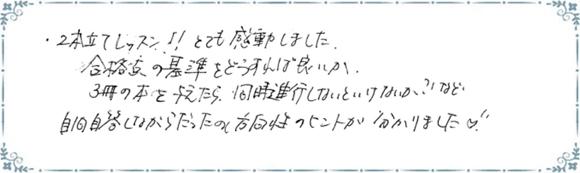 ・2本立てレッスン!! とても感動しました。
合格点の基準をどうすれば良いか、
3冊の本を与えたら、同時進行しないといけないか?など
自問自答しながらだったので方向性のヒントが分かりました♡!